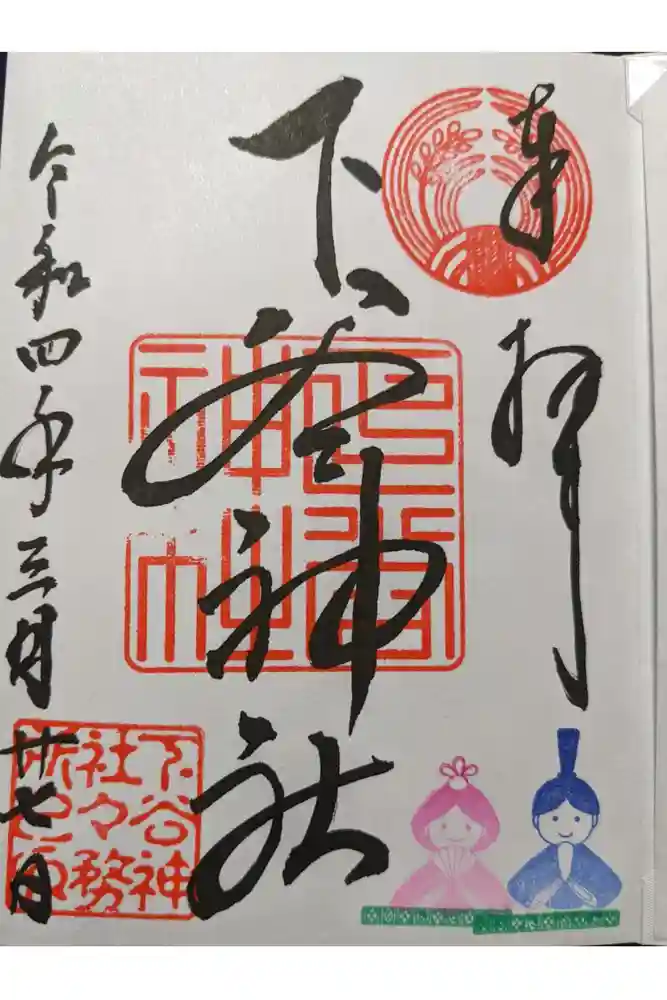 奉拝
下谷神社
下谷神社
令和四年三月廿七日
下谷神
社々務
所之印